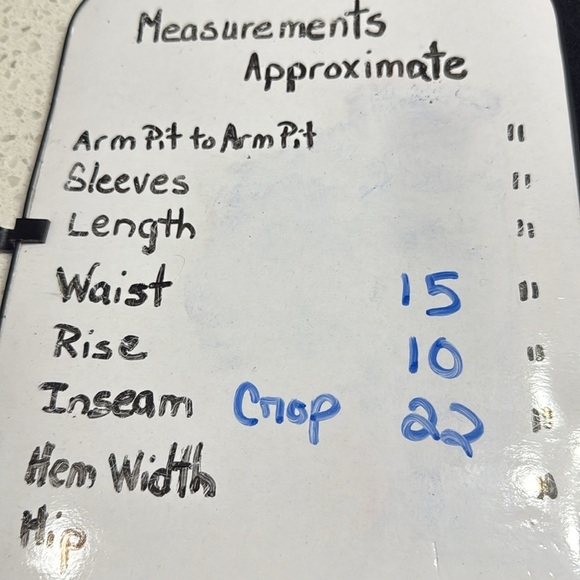 Measurements
Approximate
Arm Pit to Arm Pit "
Sleeves "
Length "
Waist 15 "
Rise 10 "
Inseam Crop 22 "
Hem Width "
Hip